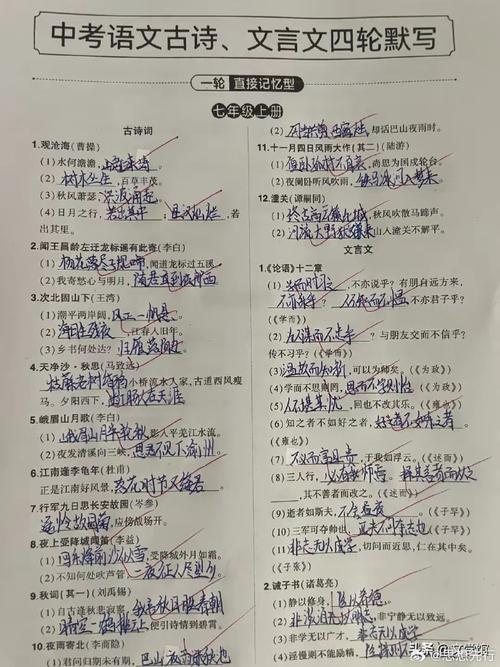 中考语文古诗、文言文四轮默写
一轮 直接记忆型
七年级上册
古诗词
1.观沧海(曹操)
(1)水何澹澹，山岛竦峙。
(2)树木丛生，百草丰茂。
(3)秋风萧瑟，洪波涌起。
(4)日月之行，若出其中；星汉灿烂，若
出其里。
2.闻王昌龄左迁龙标遥有此寄(李白)
(1)杨花落尽子规啼，闻道龙标过五溪。
(2)我寄愁心与明月，随君直到夜郎西
3.次北固山下(王湾)
(1)潮平两岸阔，风正一帆悬。
(2)海日生残夜，江春入旧年。
(3)乡书何处达？归雁洛阳边
4.天净沙·秋思(马致远)
枯藤老树昏鸦 小桥流水人家，古道西风瘦
马。夕阳西下，断肠人在天涯
5.峨眉山月歌(李白)
(1)峨眉山月半轮秋，影入平羌江水流。
(2)夜发清溪向三峡，思君不见下渝州。
6.江南逢李龟年(杜甫)
正是江南好风景，落花时节又逢君
7.行军九日思长安故园(岑参)
遥怜故园菊，应傍战场开。
8.夜上受降城闻笛(李益)
(1)回乐烽前沙似雪，受降城外月如霜。
(2)不知何处吹芦管，一夜征人尽望乡
9.秋词(其一)(刘禹锡)
(1)自古逢秋悲寂寥，我言秋日胜春朝
(2)晴空一鹤排云上，便引诗情到碧霄。
10.夜雨寄北(李商隐)
(1)君问归期未有期，巴山夜雨涨秋池
(2)何当共剪西窗烛，却话巴山夜雨时。
11.十一月四日风雨大作(其二)(陆游)
(1)僵卧孤村不自哀，尚思为国戍轮台。
(2)夜阑卧听风吹雨，铁马冰河入梦来。
12.潼关(谭嗣同)
(1)终古高云簇此城，秋风吹散马蹄声。
(2)河流大野犹嫌束，山入潼关不解平。
文言文
1.《论语》十二章
(1)学而时习之，不亦说乎？有朋自远方来，
不亦乐乎？人不知而不愠，不亦君子乎？
(《学而》)
(2)为人谋而不忠乎？与朋友交而不信乎？
传不习乎？(《学而》)
(3)温故而知新，可以为师矣。(《为政》)
(4)学而不思则罔，思而不学则殆。(《为政》)
(5)人不堪其忧，回也不改其乐。(《雍也》)
(6)知之者不如好之者，好之者不如乐之者。
(《雍也》)
(7)不义而富且贵，于我如浮云。(《述而》)
(8)三人行，必有我师焉。择其善者而从之，
其不善者而改之。(《述而》)
(9)逝者如斯夫，不舍昼夜。(《子罕》)
(10)三军可夺帅也，匹夫不可夺志也(《子罕》)
(11)非志无以成学，切问而近思，仁在其中矣。
(《子张》)
2.诫子书(诸葛亮)
(1)静以修身，俭以养德。
(2)非淡泊无以明志，非宁静无以致远。
(3)非学无以广才，非志无以成学
(4)淫慢则不能励精，